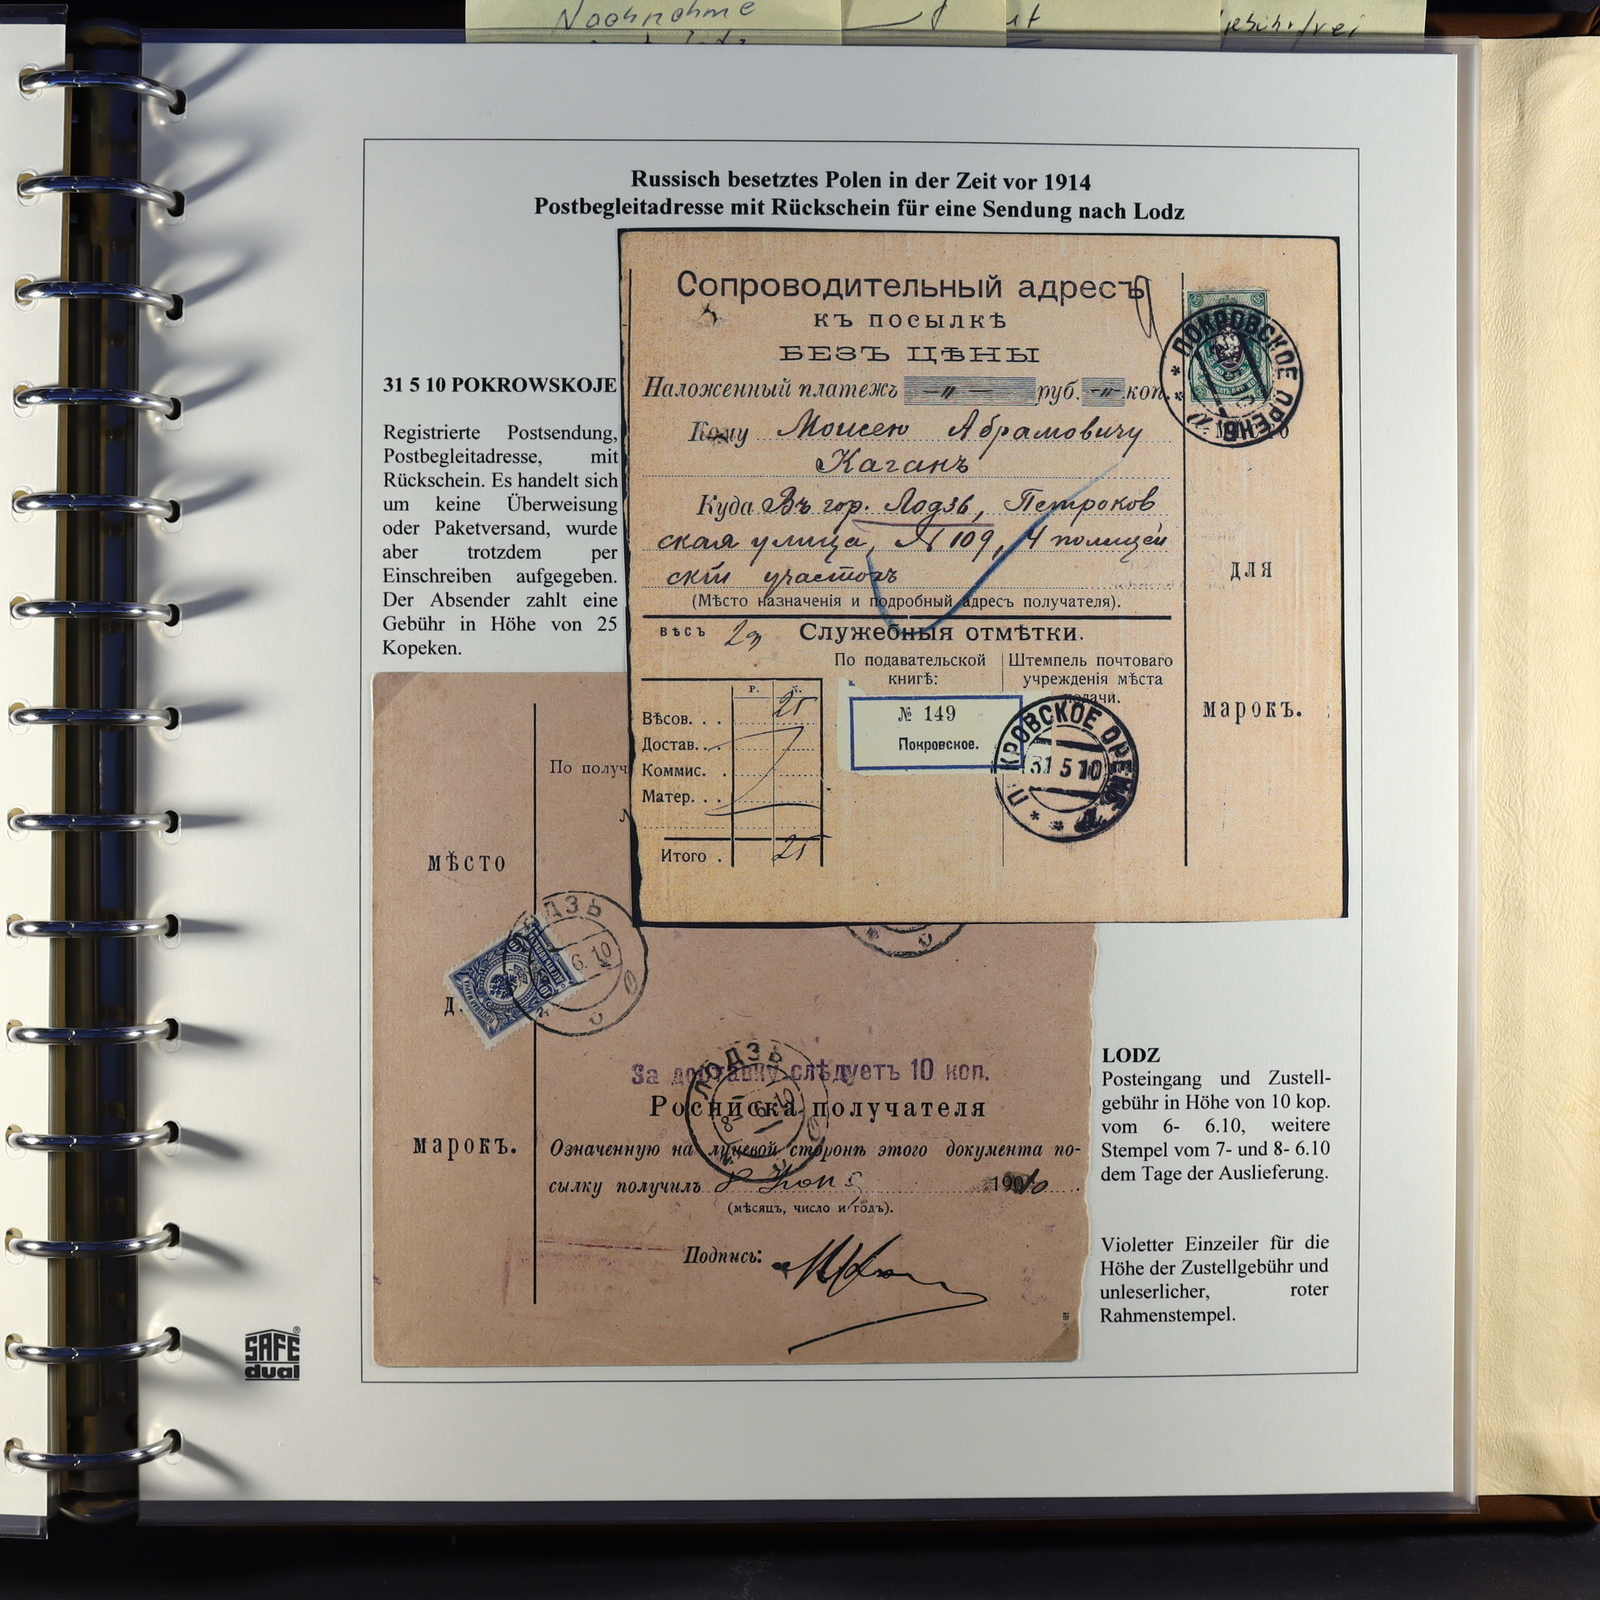 Nachnahme
gebührfrei
Russisch besetztes Polen in der Zeit vor 1914
Postbegleitadresse mit Rückschein für eine Sendung nach Lodz
31 5 10 POKROWSKOJE
Registrierte Postsendung,
Postbegleitadresse, mit
Rückschein. Es handelt sich
um keine Überweisung
oder Paketversand, wurde
aber trotzdem per
Einschreiben aufgegeben.
Der Absender zahlt eine
Gebühr in Höhe von 25
Kopeken.
Сопроводительный адресъ
къ посылкѣ
БЕЗЪ ЦѢНЫ
Наложенный платежъ руб. коп.
Кому Моисею Абрамовичу
Каганъ
Куда Въ гор. Лодзь, Петроков
ская улица, N 109, 4 полицей
скій участокъ
(Мѣсто назначенія и подробный адресъ получателя).
ВѢСЪ Служебныя отмѣтки.
По подавательской
книгѣ:
Штемпель почтоваго
учрежденія мѣста
подачи.
Р. К.
Вѣсов. . . 25
Достав. . .
Коммис. .
Матер. . .
Итого . 25
№ 149
Покровское.
ПОКРОВСКОЕ ОРЕНБ.
31 5 10
ПОКРОВСКОЕ ОРЕНБ.
ДЛЯ
МАРОКЪ.
По получ
МѢСТО
Д.
МАРОКЪ.
ЛОДЗЬ
6. 10
За доставку слѣдуетъ 10 коп.
ЛОДЗЬ
8 6 10
Росписка получателя
Означенную на лицевой сторонѣ этого документа по-
сылку получилъ 8 Юня 1910
(мѣсяцъ, число и годъ).
Подпись:
LODZ
Posteingang und Zustell-
gebühr in Höhe von 10 kop.
vom 6- 6.10, weitere
Stempel vom 7- und 8- 6.10
dem Tage der Auslieferung.
Violetter Einzeiler für die
Höhe der Zustellgebühr und
unleserlicher, roter
Rahmenstempel.
SAFE®
dual